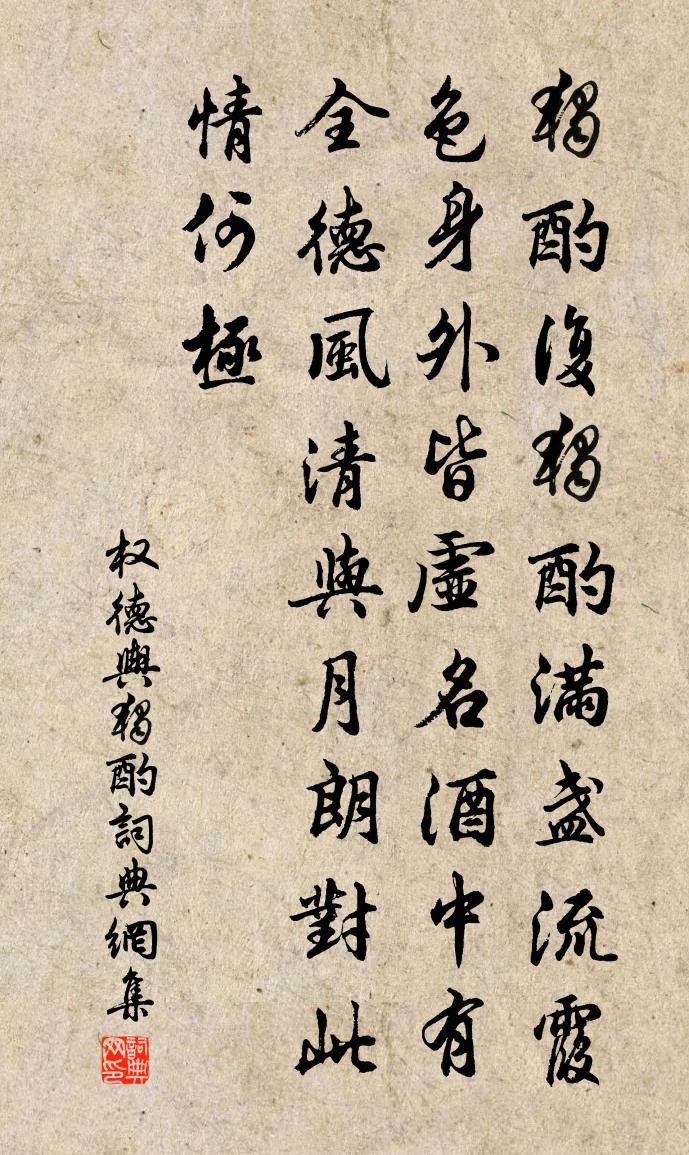 獨酌復獨酌滿盞流霞
色身外皆虛名酒中有
全德風清與月朗對此
情何極
权德輿獨酌詞典網集
詞典网印